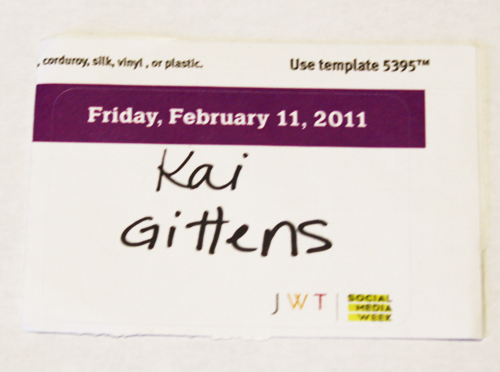 , corduroy, silk, vinyl , or plastic.
Use template 5395™
Friday, February 11, 2011
Kai
Gittens
JWT
SOCIAL
MEDIA
WEEK